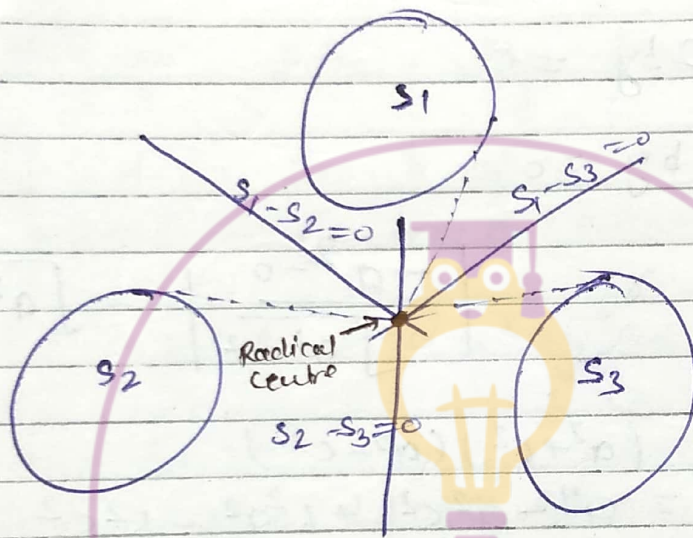 S1
S1-S2=0
S1-S3=0
Radical
centre
S2
S3
S2-S3=0